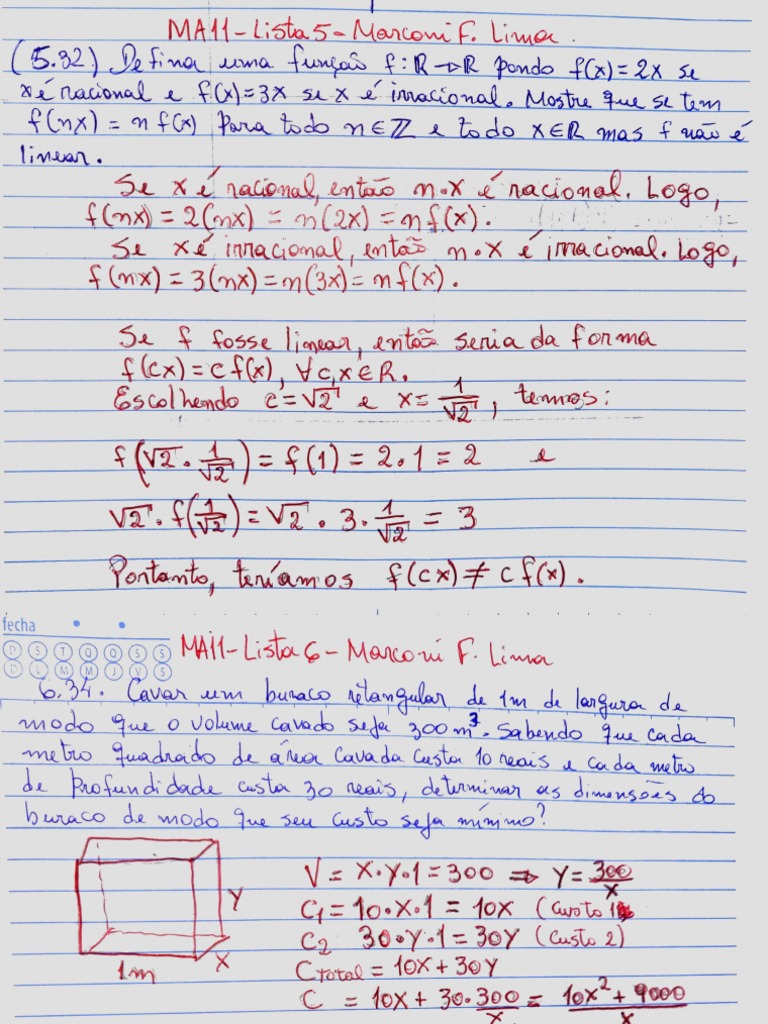 MA11-Lista 5-Marconi F. Lima.
(5.32) Defina uma função f: ℝ→ℝ pondo f(x)=2x se
x é racional e f(x)=3x se x é irracional. Mostre que se tem
f(nx) = n f(x) para todo n∈ℤ e todo x∈ℝ mas f não é
linear.
Se x é racional, então n·x é racional. Logo,
f(nx) = 2(nx) = n(2x) = nf(x).
Se x é irracional, então n·x é irracional. Logo,
f(nx) = 3(nx) = n(3x) = nf(x).
Se f fosse linear, então seria da forma
f(cx)=c f(x), ∀c,x∈R.
Escolhendo c=√2 e x=1/√2, temos:
f(√2·1/√2) = f(1) = 2·1 = 2 e
√2·f(1/√2) = √2·3·1/√2 = 3
Portanto, teríamos f(cx) ≠ c f(x).
fecha
D S T Q Q S S
D L M M J V S
MA11-Lista 6-Marconi F. Lima
6.34. Cavar um buraco retangular de 1m de largura de
modo que o volume cavado seja 300m³. Sabendo que cada
metro quadrado de área cavada custa 10 reais e cada metro
de profundidade custa 30 reais, determinar as dimensões do
buraco de modo que seu custo seja mínimo?
V = x·y·1 = 300 ⇒ y = 300/x
C₁ = 10·x·1 = 10x (custo 1)
C₂ 30·y·1 = 30y (custo 2)
Ctotal = 10x + 30y
C = 10x + 30·300/x = 10x² + 9000/x
y
1m
x